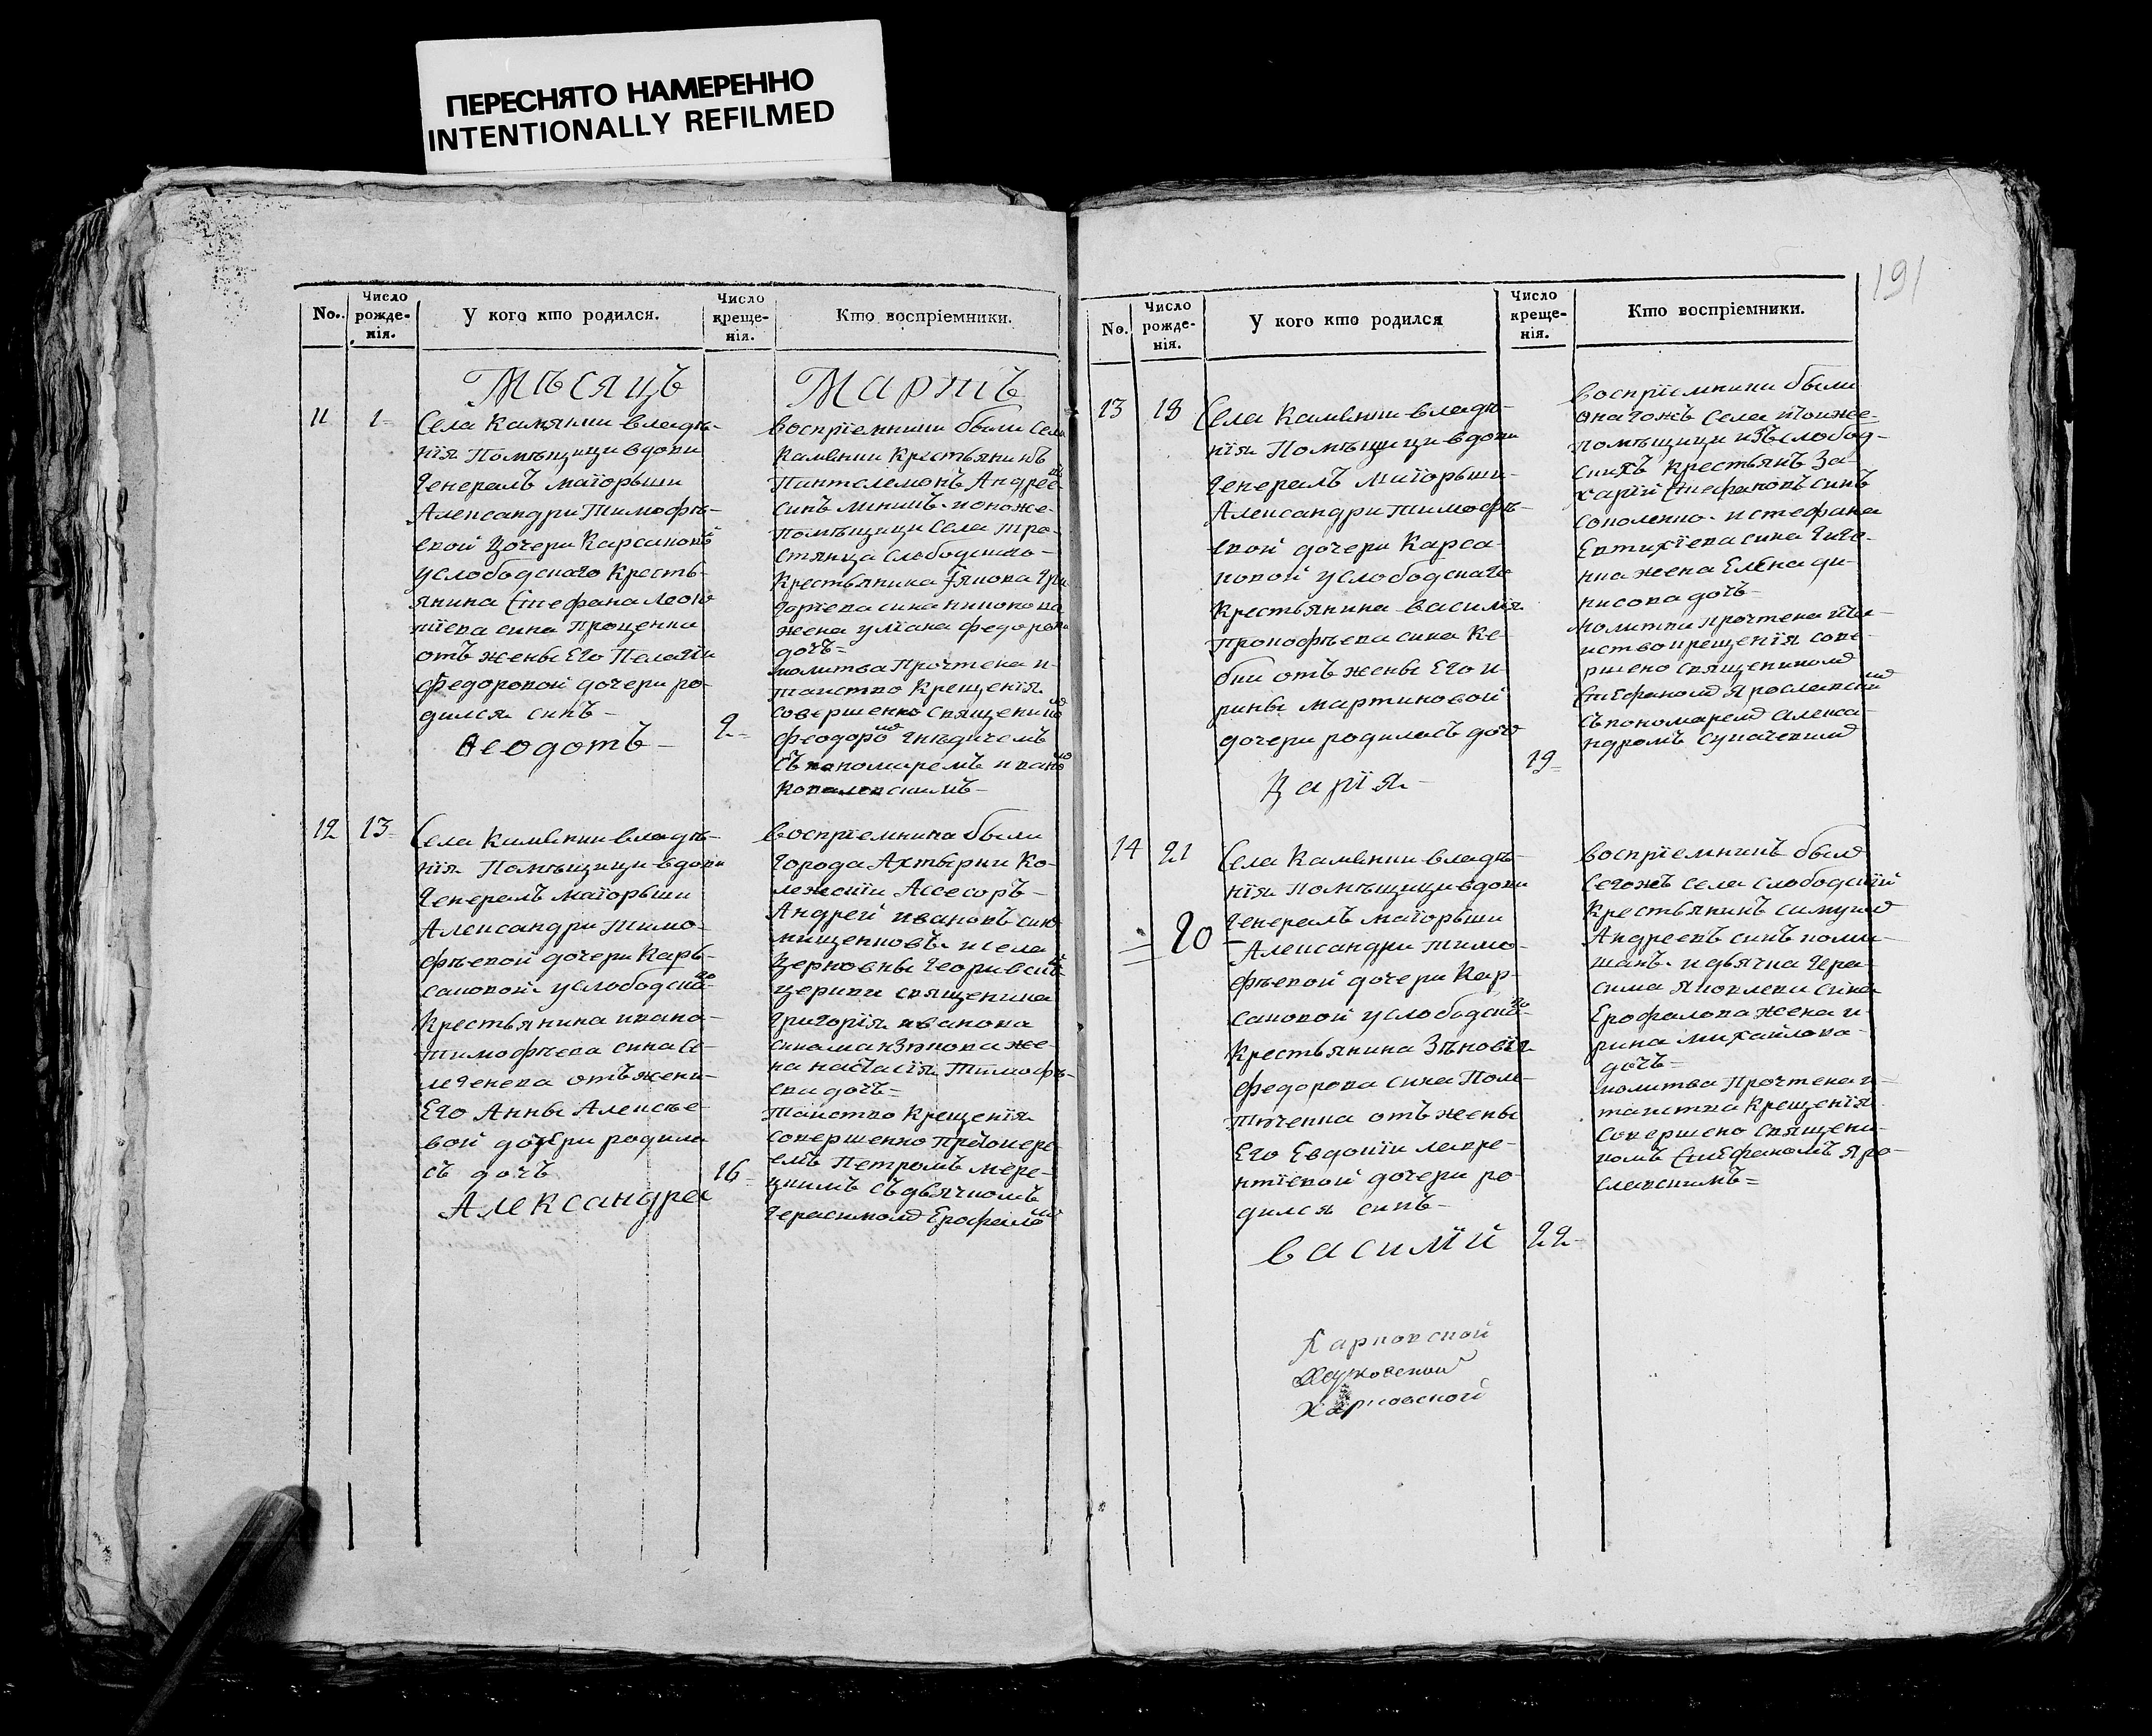 ПЕРЕСНЯТО НАМЕРЕННО
INTENTIONALLY REFILMED
191
No.
Число рожде-нія.
У кого кто родился.
Число креще-нія.
Кто воспріемники.
Мѣсяцъ
Мартъ
11
1
Села Камянки владѣ-
нія Помѣщици вдови
Генералъ маіорьши
Александри Тимофѣ-
евой дочери Карсановой
услободскаго Кресть-
янина Стефана Леон
тіева сина Проценка
отъ жены Его Пелагіи
Федоровой дочери ро-
дился синъ
Ѳеодотъ
2
воспріемники были Села
Камянки Крестьянинъ
Пантелемонъ Андреевъ
синъ и таяже
помѣщици Села тро-
стянца слободскаго
Крестьянина Якова Гри
горіева сина
жена уліана федорова
дочъ
молитва Прочтена и
таинство Крещенія
совершенно священикомъ
феодоромъ Гнѣдичемъ
Съ пономаремъ иваномъ
Ковалевскимъ
12
13
Села Камянки владѣ-
нія Помѣщици вдови
Генералъ маіорьши
Александри Тимо-
фѣевой дочери Карь-
сановой услободскаго
Крестьянина ивана
тимофѣева сина Се-
легенева отъ жени
Его Анны Алексѣе-
вой дочери родила
съ дочъ
Александра
16
воспріемника были
города Ахтырки Ко-
лежскій Ассесоръ
Андрей ивановъ синъ
мищенковъ и села
Церковны Георгиевской
церкви священика
Григорія иванова
сина жена
настасія Тимофѣ-
ева дочъ
таинство Крещенія
совершенно Протоиере
емъ Петромъ
съ дьячкомъ
Герасимомъ Ерофаловимъ
No.
Число рожде-нія.
У кого кто родился
Число креще-нія.
Кто воспріемники.
13
18
Села Камянки владѣ-
нія Помѣщици вдови
Генералъ маіорьши
Александри тимофѣ-
евой дочери Карса-
новой услободскаго
Крестьянина василія
Прокофѣева сина Ке-
бки отъ жены Его и-
рины мартиновой
дочери родилась дочъ
Дарія
19
воспріемники были
онагожъ села тоиже
помѣщици изъ слобод-
скихъ крестьянъ За-
харій Стефановъ синъ
соколенко и стефана
Евтихіева сина
жена Елена ди-
нисова дочъ
молитва прочтена и та-
инство крещенія сове-
ршено священикомъ
Стефаномъ Ярославскимъ
Съ пономаремъ алекса-
ндромъ
14
21
20
Села Камянки владѣ-
нія Помѣщици вдови
Генералъ маіорьши
Александри тимо-
фѣевой дочери Кар-
сановой услободскаго
Крестьянина Зѣновія
федорова сина Поле-
тюченка отъ жены
Его Евдокіи лавре-
нтіевой дочери ро-
дился синъ
василій
22
воспріемникъ былъ
Сегожъ села слободскій
Крестьянинъ
Андреевъ синъ
и дьячка Гера-
сима яковлева сина
Ерофалова жена и-
рина михайлова
дочъ
молитва Прочтена и
таинства Крещенія
Совершено священи-
комъ Стефаномъ Яро-
славскимъ
Харковской
Харковской
Харковской